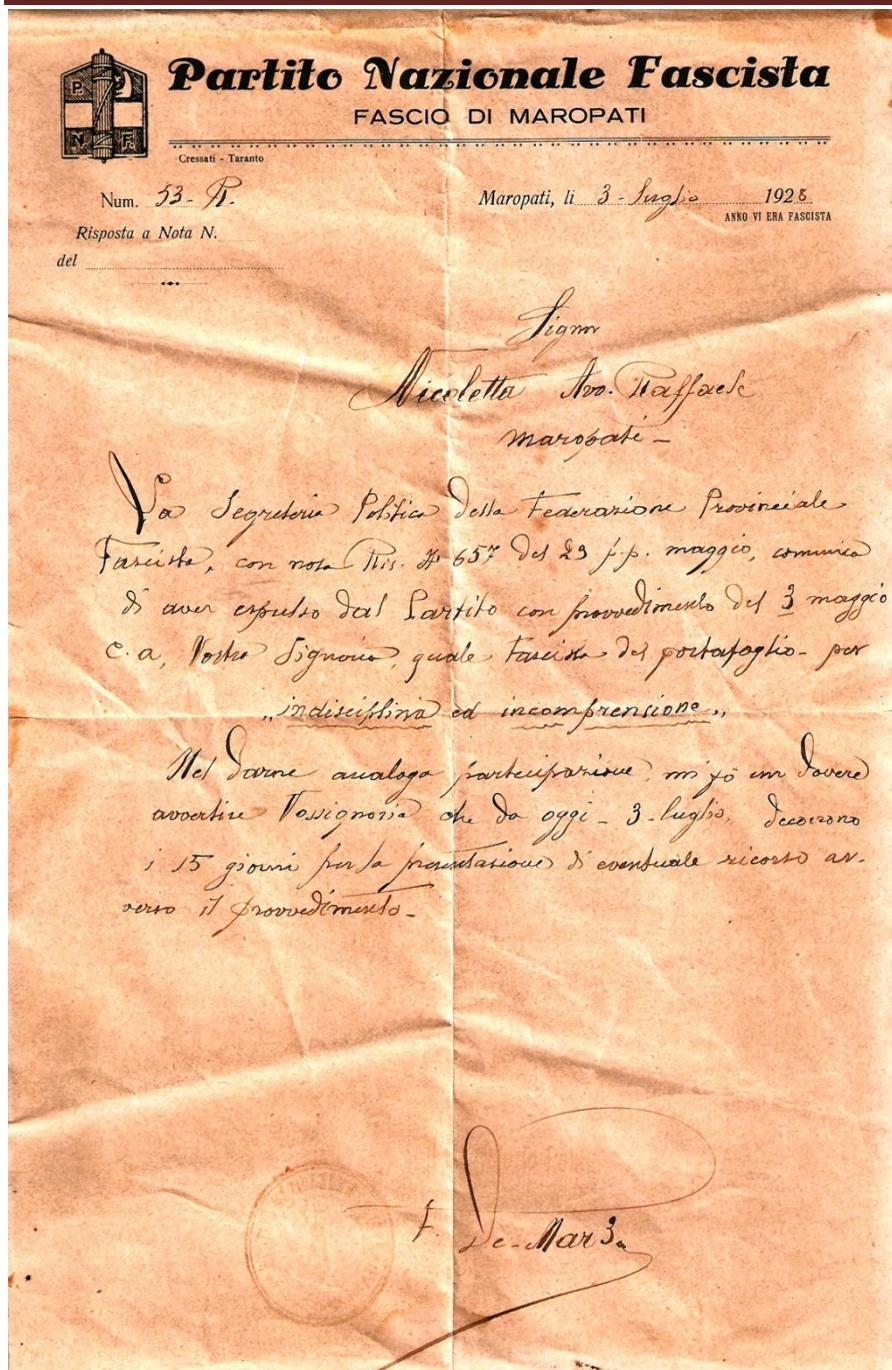 P. N. F.
Partito Nazionale Fascista
FASCIO DI MAROPATI
Cressati - Taranto
Num. 53-R.
Maropati, li 3 - luglio 1928
ANNO VI ERA FASCISTA
Risposta a Nota N.
del
Signor
Nicoletta Avv. Raffaele
Maropati -
La Segreteria Politica della Federazione Provinciale
Fascista, con nota Ris. N° 657 del 23 p.p. maggio, comunica
di aver espulso dal Partito con provvedimento del 3 maggio
c. a, Vostra Signoria, quale fascista del portafoglio - per
„indisciplina ed incomprensione„
Nel darne analoga partecipazione, mi fò un dovere
avvertire Vossignoria che da oggi - 3 - luglio, decorrono
i 15 giorni per la presentazione di eventuale ricorso av-
verso il provvedimento -
F. De-Marzo